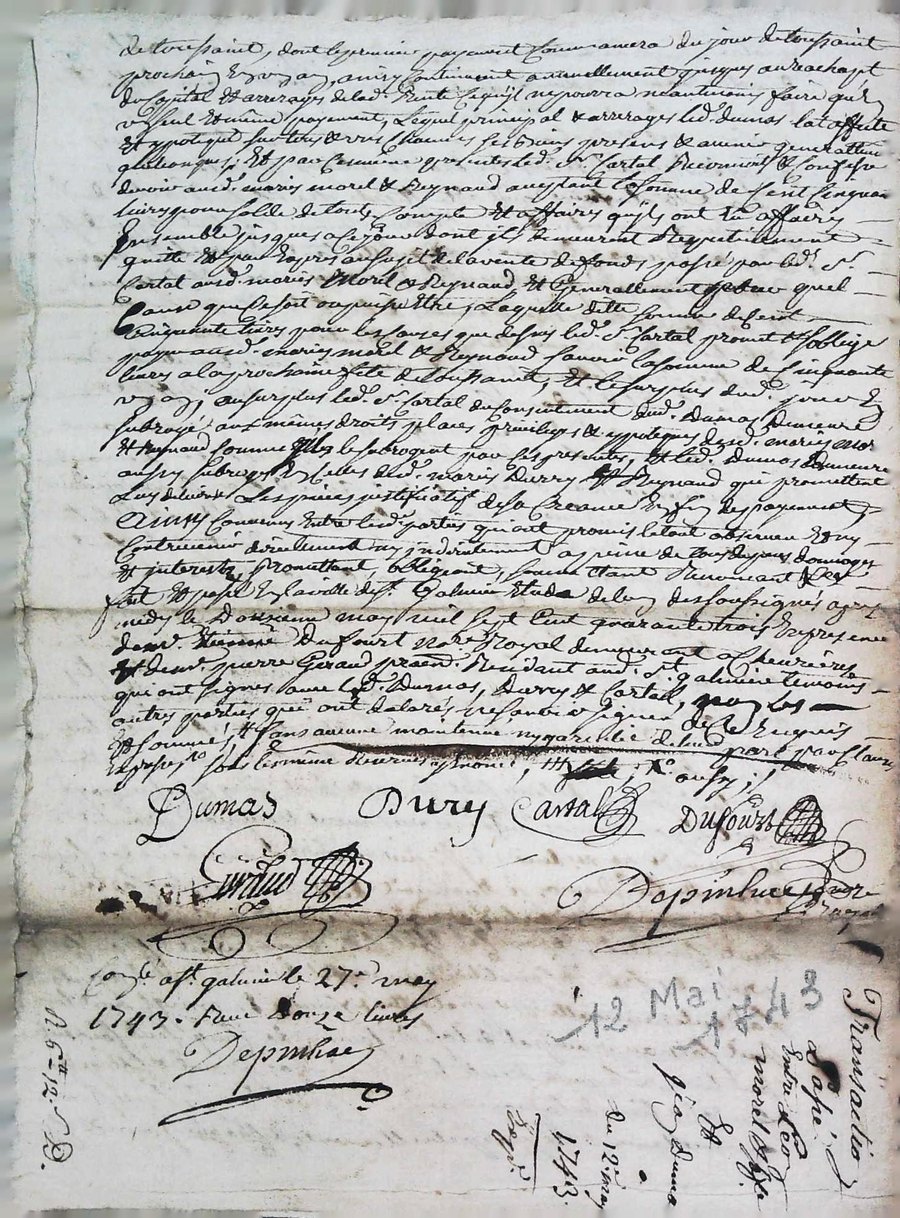 de toussaint, dont le premier payement commancera du jour de toussaint
prochain En un an, ainsy continuant annuellement jusques au reachapt
du Capital & arrerages de lad. Rente Ce qu'il ne pourra neantmoins faire qu'En
un seul Et même payement, Lequel principal & arrerages led. dumas l'at affecté
Et ypotequé sur tous & uns Chacuns ses Biens presens & avenir generallem.
quelconques, Et par Ces même presentes led. Sr. Cartal Reconnoit & Confesse
devoir aud. mariés morel & Reynaud acceptant la somme de Cent Cinquante
livres pour solde de touts Compte Et affaires qu'ils ont Eu affaires
Ensemble jusques a Ce jour dont ils demeurent Respectivement
quitte Et par Exprès au sujet de la vente de fonds passé par led. Sr.
Cartal aud. mariés Morel & Reynaud, Et Generallement quel
Cause que Ce soit ou puisse Etre, Laquelle ditte somme de Cent
Cinquante livres pour les Causes que dessus led. Sr. Cartal promet & s'obllige
payer aud. mariés morel & Reynaud sauoir la somme de Cinquante
livres a la prochaine fete de toussaint, Et le surplus dud. jour En
un an, au surplus led. Sr. Cartal du Consentement dud. Dumas Demeure
subrogé aux mêmes droits places privileges & ypoteques desd. mariés mor
& Reynaud Comme Elles le subrogent par Ces presentes, Et led. Dumas Demeure
aussy subrogé En Celles desd. mariés Durry & Reynaud qui promettent
Luy delivrer Les pieces justificatif de la Creance En fin de payement,
Ainsy Convenu Entre lesd. parties qui ont promis le tout observer Et ny
Contrevenir directement ny indirectement a peine de tous depens dommages
& interests, promettant, obligeant, soumettant Renonceant &
fait Et passé En la ville de St. Galmier Etude de luy dessoussignés apres
midy le Douzieme may mil sept Cent quarante trois En presence
de Mr. Etienne Dufourt Nore. Royal demeurant a Chevrières
& de mr. pierre Giraud praen. Residant aud. St. galmier temoins
qui ont signés avec led. Dumas, Durry & Cartal, non les
autres parties qui ont declarés ne sauoir signer de Ce Enquis
& sommés, & sans aucune maintenue ny garentie de leur part par Clause
Expresse
Dumas Dury Cartal Dufourt
Giraud
Depinhac
Conlé. a St. galmier le 27e. may
1743. Reçu Douze livres
Depinhac
12 Mai
1743
Transaction
Passé
Entre Léo
morel & sa fe
Et
Jean Duma
du 12e. may
1743.
Expé.